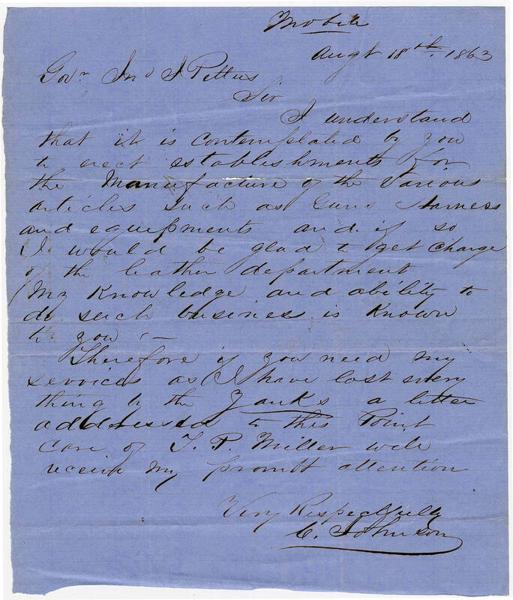 Mobile
Augt 18th. 1863
Govr Jno J Pettus
Sir
I understand
that it is contemplated by you
to erect establishments for
the Manufacture of the Various
articles such as Guns Harness
and equipments and if so
I would be glad to get charge
of the leather department
My Knowledge and ability to
do such business is Known
to you —
Therefore if you need my
services as I have lost every
thing to the Yanks a letter
addressed to this Point
care of T. P. Miller will
receive my promtt attention
Very Respectfully
C. Johnson